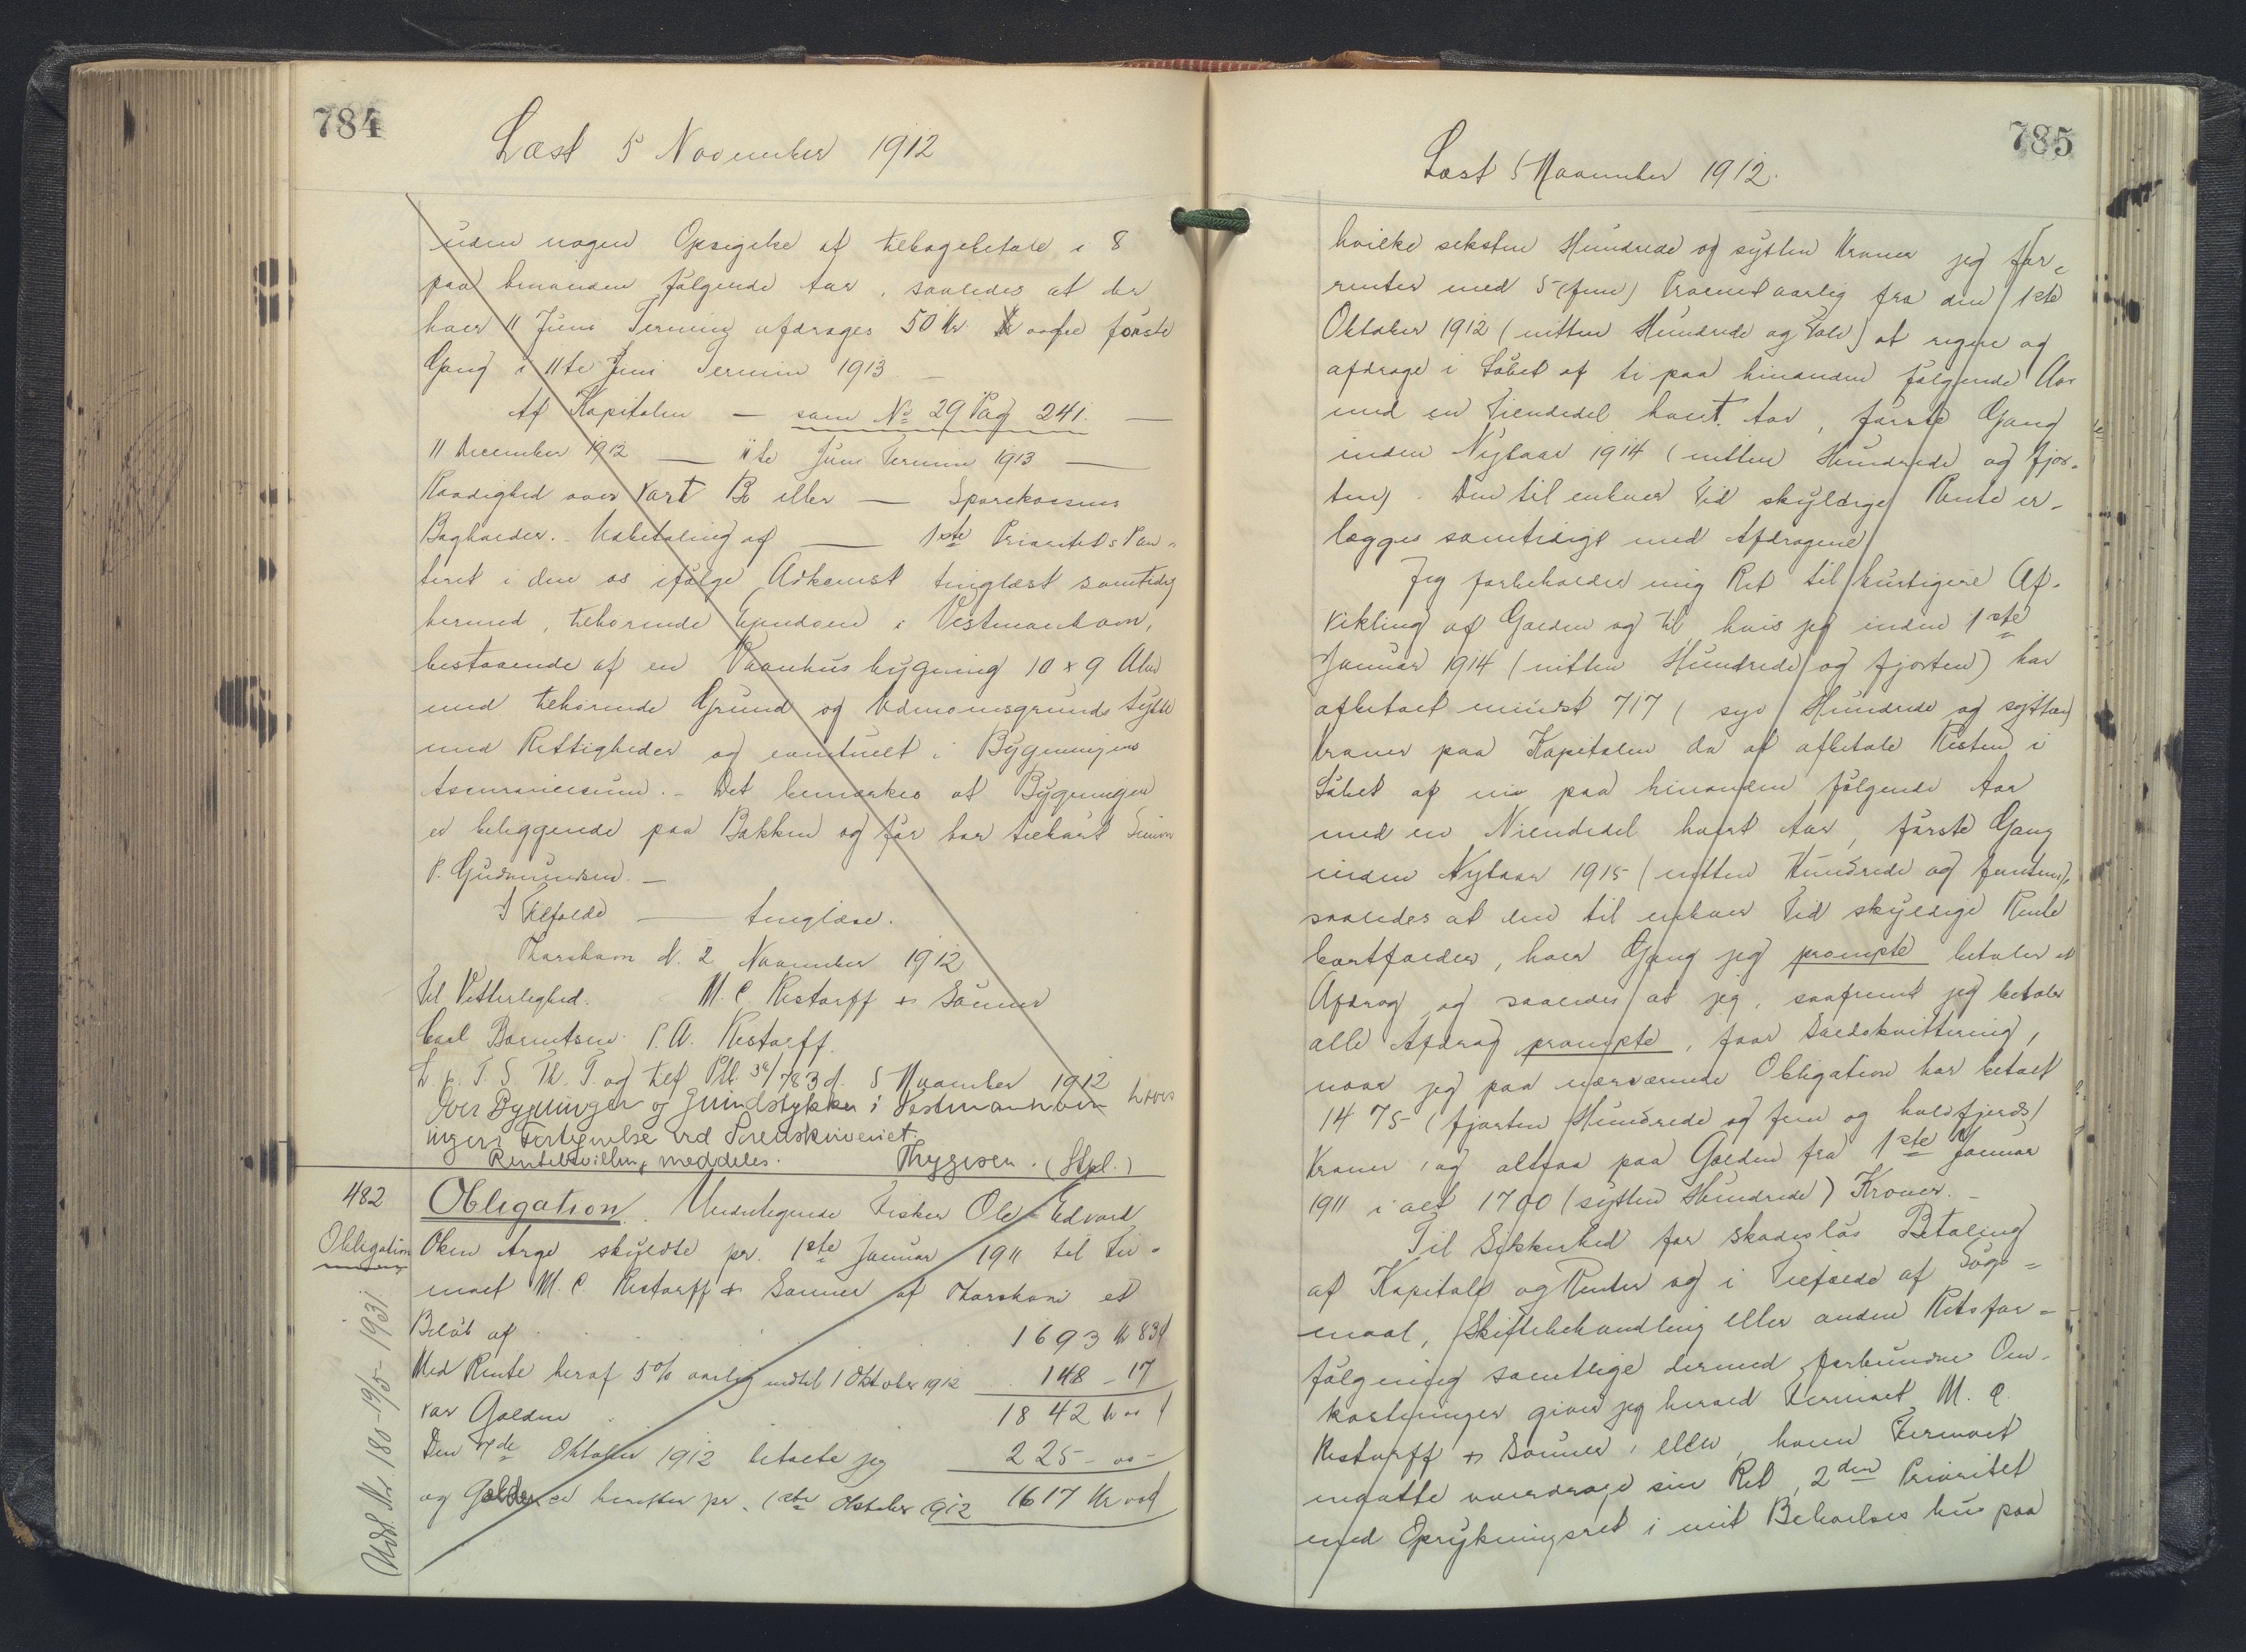 784
Læst 5 November 1912
uden nogen Opsigelse at tilbagebetale i 8
paa hinanden følgende Aar, saaledes at der
hver 11 Juni Termin afdrages 50 Kr. første
Gang i 11te Juni Termin 1913 —
Af Kapitalen — som No 29 Pag 241. —
11 December 1912 — 11te Juni Termin 1913 —
Raadighed over vort Bo eller — Sparekassens
Bogholder. — Udbetaling af — 1ste Prioritets Pan-
teret i den os ifølge Adkomst tinglæst samtidig
hermed, tilhørende Ejendom i Vestmanhavn,
bestaaende af en Vaanhusbygning 10 x 9 Alen
med tilhørende Grund og Udmarksgrundstykke
med Rettigheder og eventuelt i Bygningens
Assurancesum. — Det bemærkes at Bygningen
er beliggende paa Bakken og før har tilhørt Simon
P. Gudmundsen. —
I Tilfælde — tinglæse.
Thorshavn d. 2 November 1912
Til Vitterlighed. M. C. Restorff & Sønner
Carl Berentsen. P. A. Restorff.
L. p. T. S. Th. T. og tilf Ptb. 38/783 d. 5 November 1912
Over Bygninger og Grundstykker i Vestmanhavn haves
ingen Fortegnelse ved Sorenskriveriet.
meddeles. Thygesen. (Stpl.)
482
Obligation
Udsl. Nr. 180 - 19/5 - 1931.
Obligation. Undertegnede Fisker Ole Edvard
Olsen Arge skyldte pr. 1ste Januar 1911 til Fir-
maet M. C. Restorff & Sønner af Thorshavn et
Beløb af . . . . 1693 Kr 83 Ø
Med Rente heraf 5% aarlig indtil 1 Oktober 1912 148 - 17
var Gælden . . . 1842 Kr 00 Ø
Den 7de Oktober 1912 betalte jeg 225 - 00 -
og Gælden er herefter pr. 1ste Oktober 1912 1617 Kr 00 Ø
785
Læst 5 November 1912.
hvilke seksten Hundrede og sytten Kroner jeg for-
renter med 5 (fem) Procent aarlig fra den 1ste
Oktober 1912 (nitten Hundrede og Tolv) at regne og
afdrage i Løbet af ti paa hinanden følgende Aar
med en Tiendedel hvert Aar, første Gang
inden Nytaar 1914 (nitten Hundrede og fjor-
ten). Den til enhver Tid skyldige Rente er-
lægges samtidigt med Afdragene.
Jeg forbeholder mig Ret til hurtigere Af-
vikling af Gælden og til, hvis jeg inden 1ste
Januar 1914 (nitten Hundrede og fjorten) har
afbetalt mindst 717 (syv Hundrede og sytten)
Kroner paa Kapitalen da at afbetale Resten i
Løbet af ni paa hinanden følgende Aar
med en Niendedel hvert Aar, første Gang
inden Nytaar 1915 (nitten Hundrede og femten),
saaledes at den til enhver Tid skyldige Rente
bortfalder, hver Gang jeg prompte betaler et
Afdrag og saaledes at jeg, saafremt jeg betaler
alle Afdrag prompte, faar Saldokvittering,
naar jeg paa nærværende Obligation har betalt
1475 (fjorten Hundrede og fem og halvfjerds)
Kroner, og altsaa paa Gælden fra 1ste Januar
1911 i alt 1700 (sytten Hundrede) Kroner. —
Til Sikkerhed for skadesløs Betaling
af Kapital og Renter og i Tilfælde af Søgs-
maal, Skiftebehandling eller anden Retsfor-
følgning samtlige dermed forbundne Om-
kostninger giver jeg herved Firmaet M. C.
Restorff & Sønner, eller, hvem Firmaet
maatte overdrage sin Ret, 2den Prioritet
med Oprykningsret i mit Beboelseshus paa